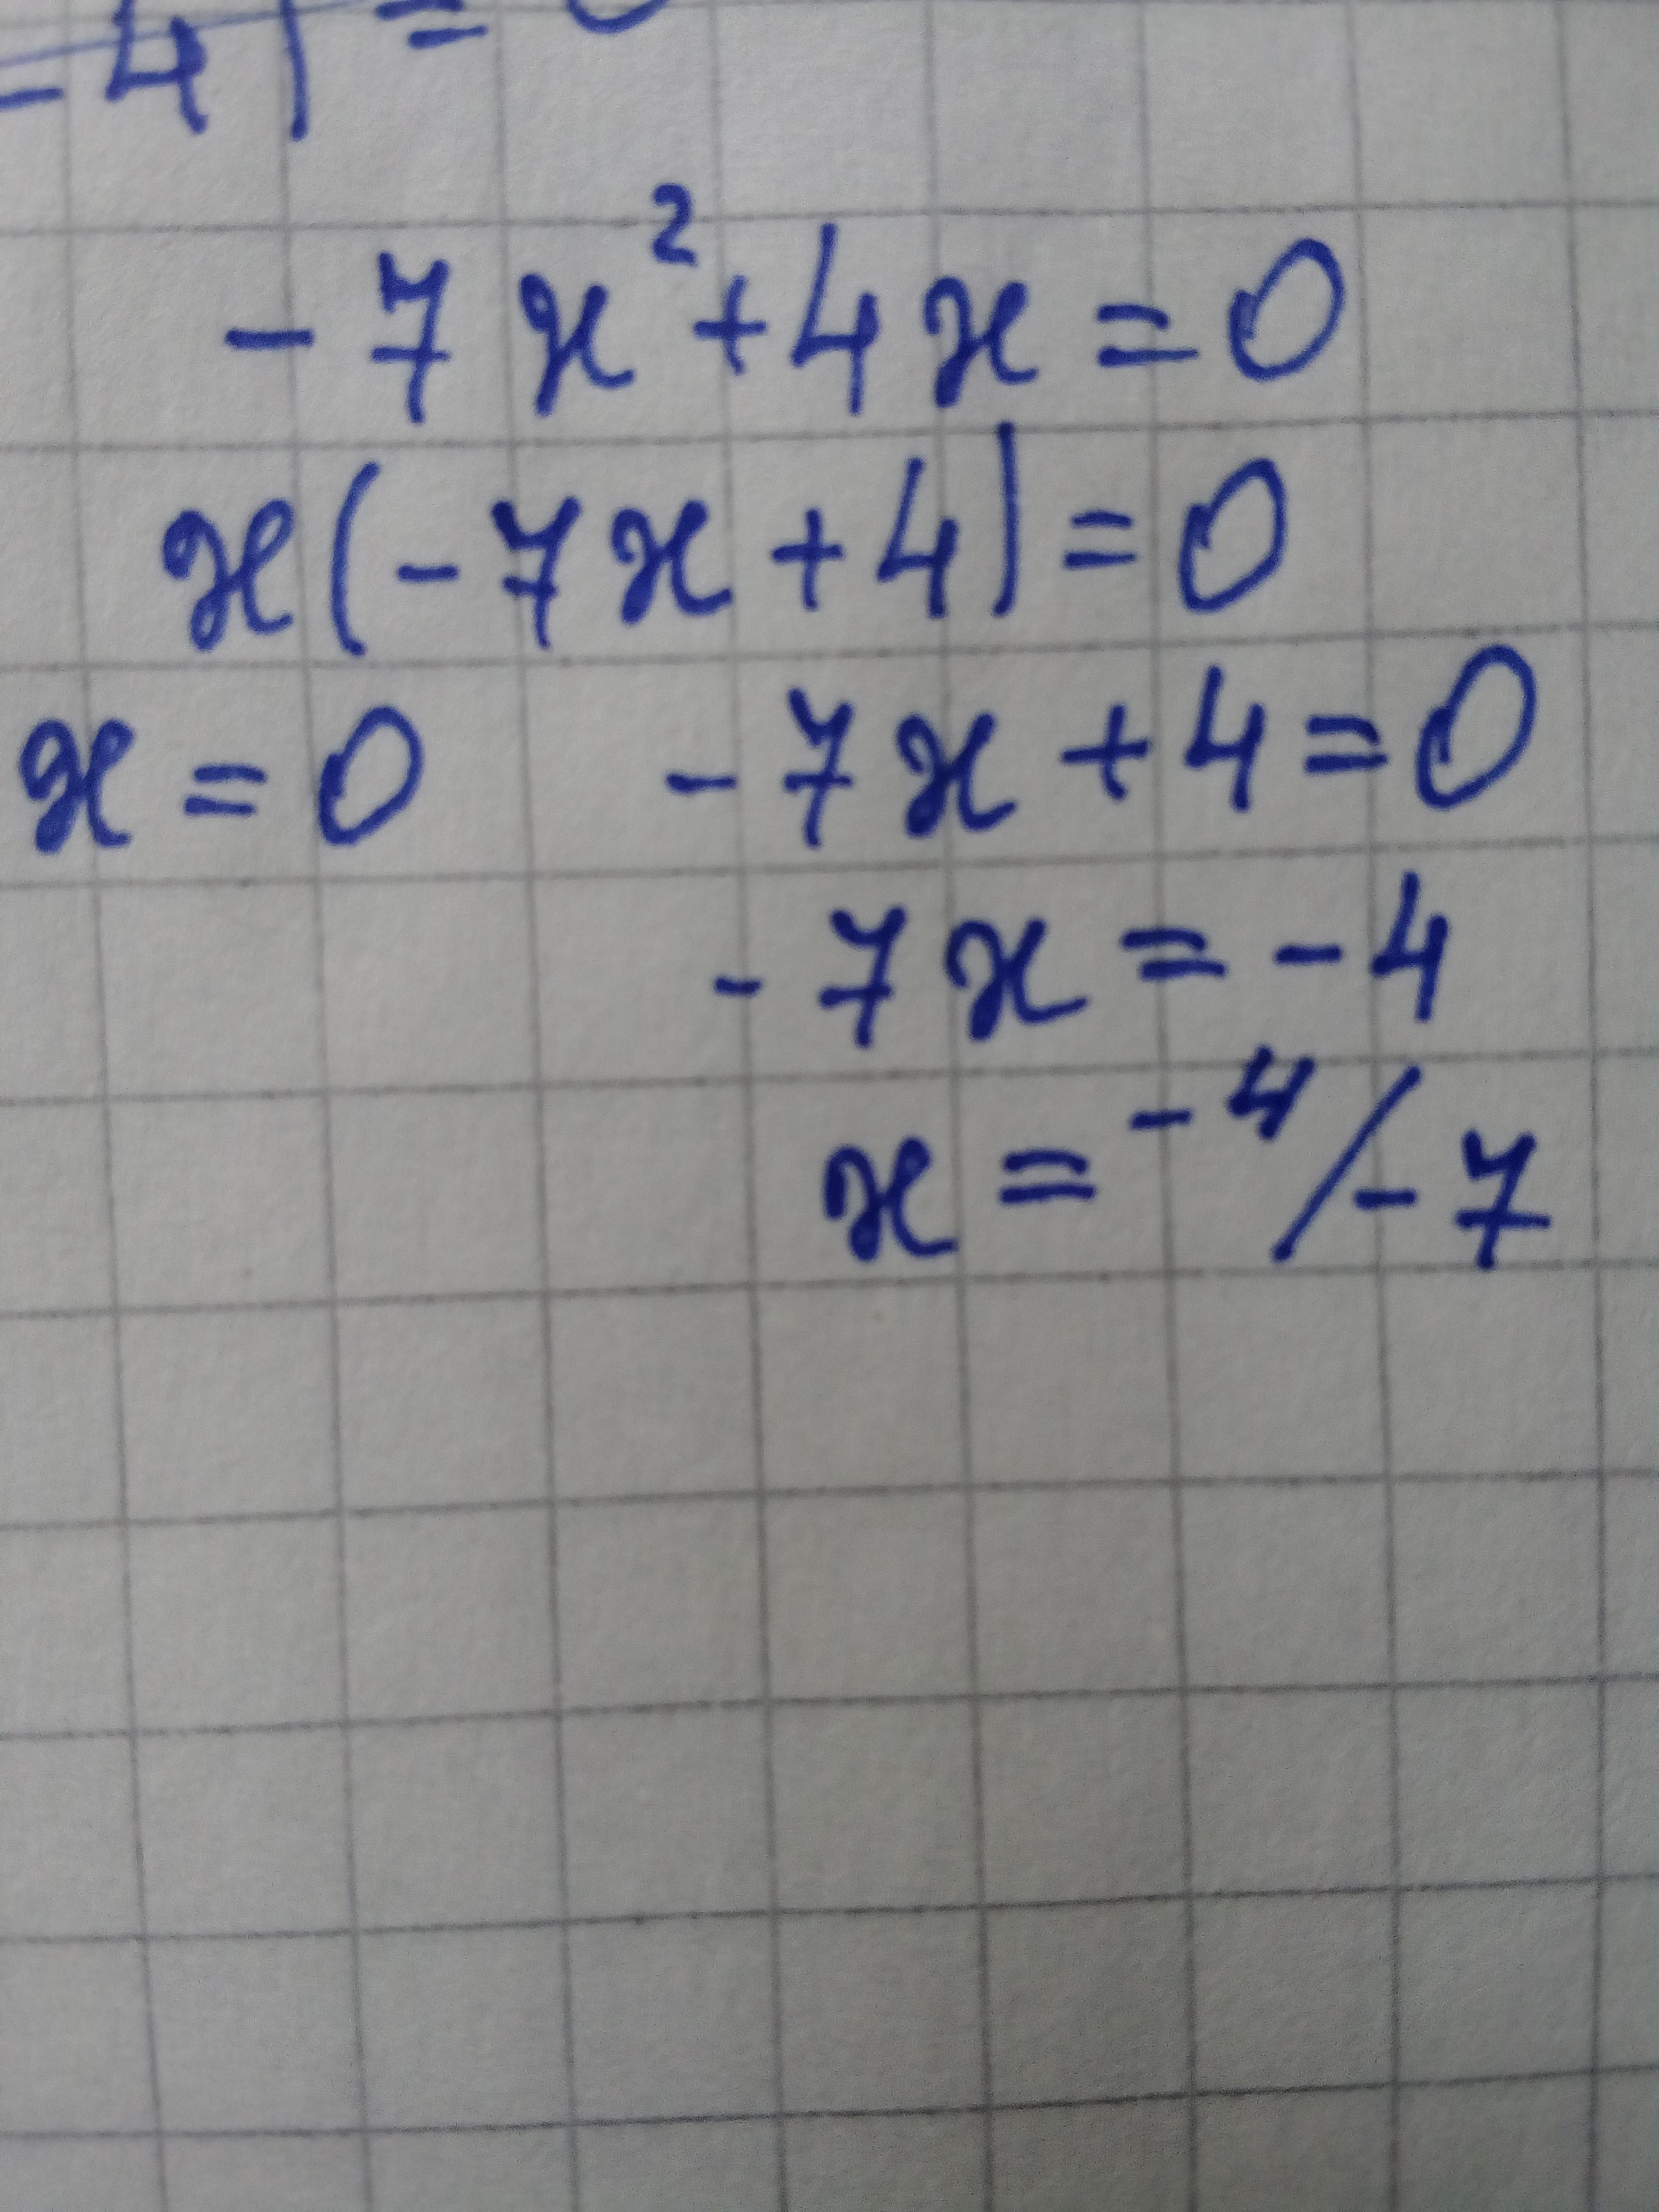 - 4) = 0
- 7x² + 4x = 0
x(- 7x + 4) = 0
x = 0 - 7x + 4 = 0
- 7x = - 4
x = - 4/- 7